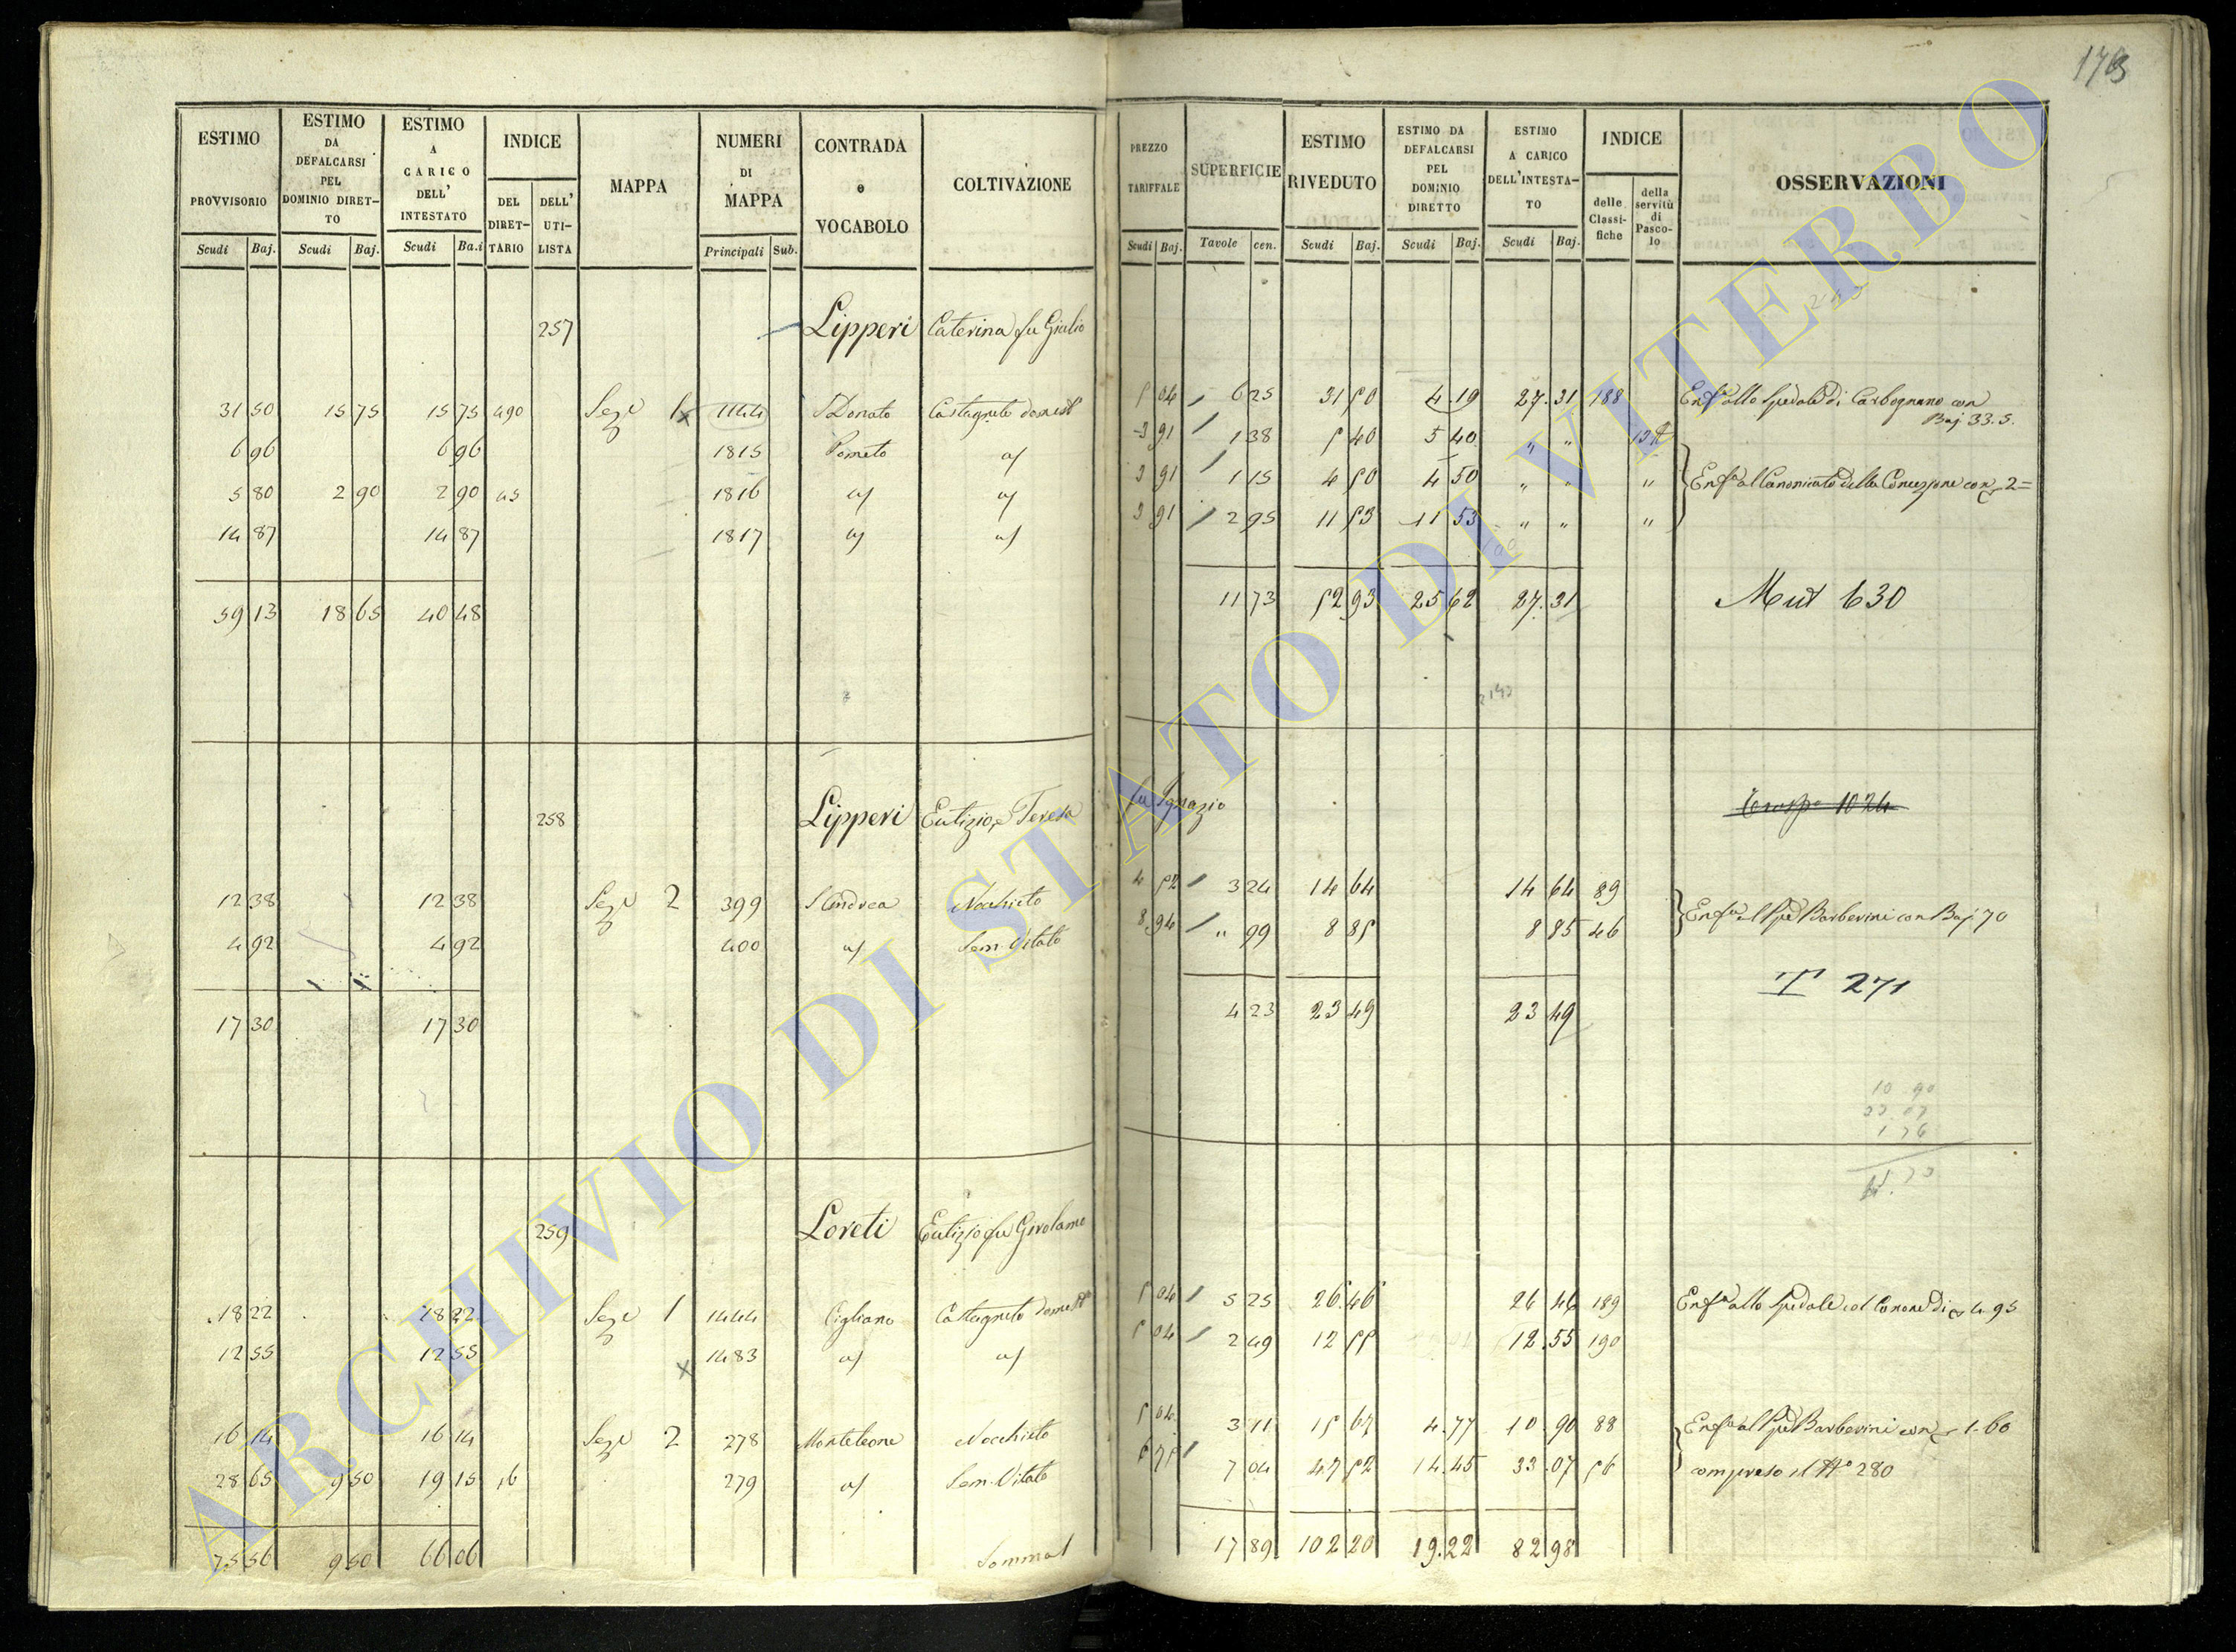 173
ESTIMO PROVVISORIO Scudi Baj.
ESTIMO DA DEFALCARSI PEL DOMINIO DIRET-TO Scudi Baj.
ESTIMO A CARICO DELL' INTESTATO Scudi Ba.i
INDICE DEL DIRET-TARIO DELL' UTI-LISTA
MAPPA
NUMERI DI MAPPA Principali Sub.
CONTRADA e VOCABOLO
COLTIVAZIONE
PREZZO TARIFFALE Scudi Baj.
SUPERFICIE Tavole cen.
ESTIMO RIVEDUTO Scudi Baj.
ESTIMO DA DEFALCARSI PEL DOMINIO DIRETTO Scudi Baj.
ESTIMO A CARICO DELL'INTESTA-TO Scudi Baj.
INDICE delle Classi-fiche della servitù di Pasco-lo
OSSERVAZIONI
257 Lipperi Caterina fu Giulio
31 50 15 75 15 75 490 Sez.e 1 1144 S Donato Castagneto domest. 5 04 6 25 31 50 4.19 27.31 188 Enf.a allo Spedale di Carbognano con Baj 33.5.
6 96 6 96 1815 Pometo 3 91 1 38 5 40 5 40 " "
5 80 2 90 2 90 45 1816 3 91 1 15 4 50 4 50 " " " Enf.a al Canonicato della Concezione con 2=
14 87 14 87 1817 3 91 2 95 11 53 11 53 " " "
59 13 18 65 40 48 11 73 52 93 25 62 27.31 Mut 630
258 Lipperi Eutizio, e Teresa fu Ignazio
1024
12 38 12 38 Sez.e 2 399 S Andrea Nocchieto 4 52 3 24 14 64 14 64 89 Enf.a al Ppe Barberini con Baj 70
4 92 4 92 400 Sem. Vitato 8 94 " 99 8 85 8 85 46
T 271
17 30 17 30 4 23 23 49 23 49
10 90
33.07
1 76
259 Loreti Eutizio fu Girolamo
18 22 18 22 Sez.e 1 1444 Cigliano Castagneto domest.o 5 04 5 25 26.46 26 46 189 Enf.a allo Spedale col Canone di 4 95
12 55 12 55 1483 5 04 2 49 12 55 12.55 190
16 14 16 14 Sez.e 2 278 Monteleone Nocchieto 5 04 3 11 15 67 4.77 10.90 88 Enf.a al Ppe Barberini con 1-60
28 65 9 50 19 15 16 279 Sem. Vitato 6 75 7 04 47 52 14.45 33.07 56 compreso il N.o 280
75 56 9 50 66 06 Somma 17 89 102 20 19.22 82 98
ARCHIVIO DI STATO DI VITERBO